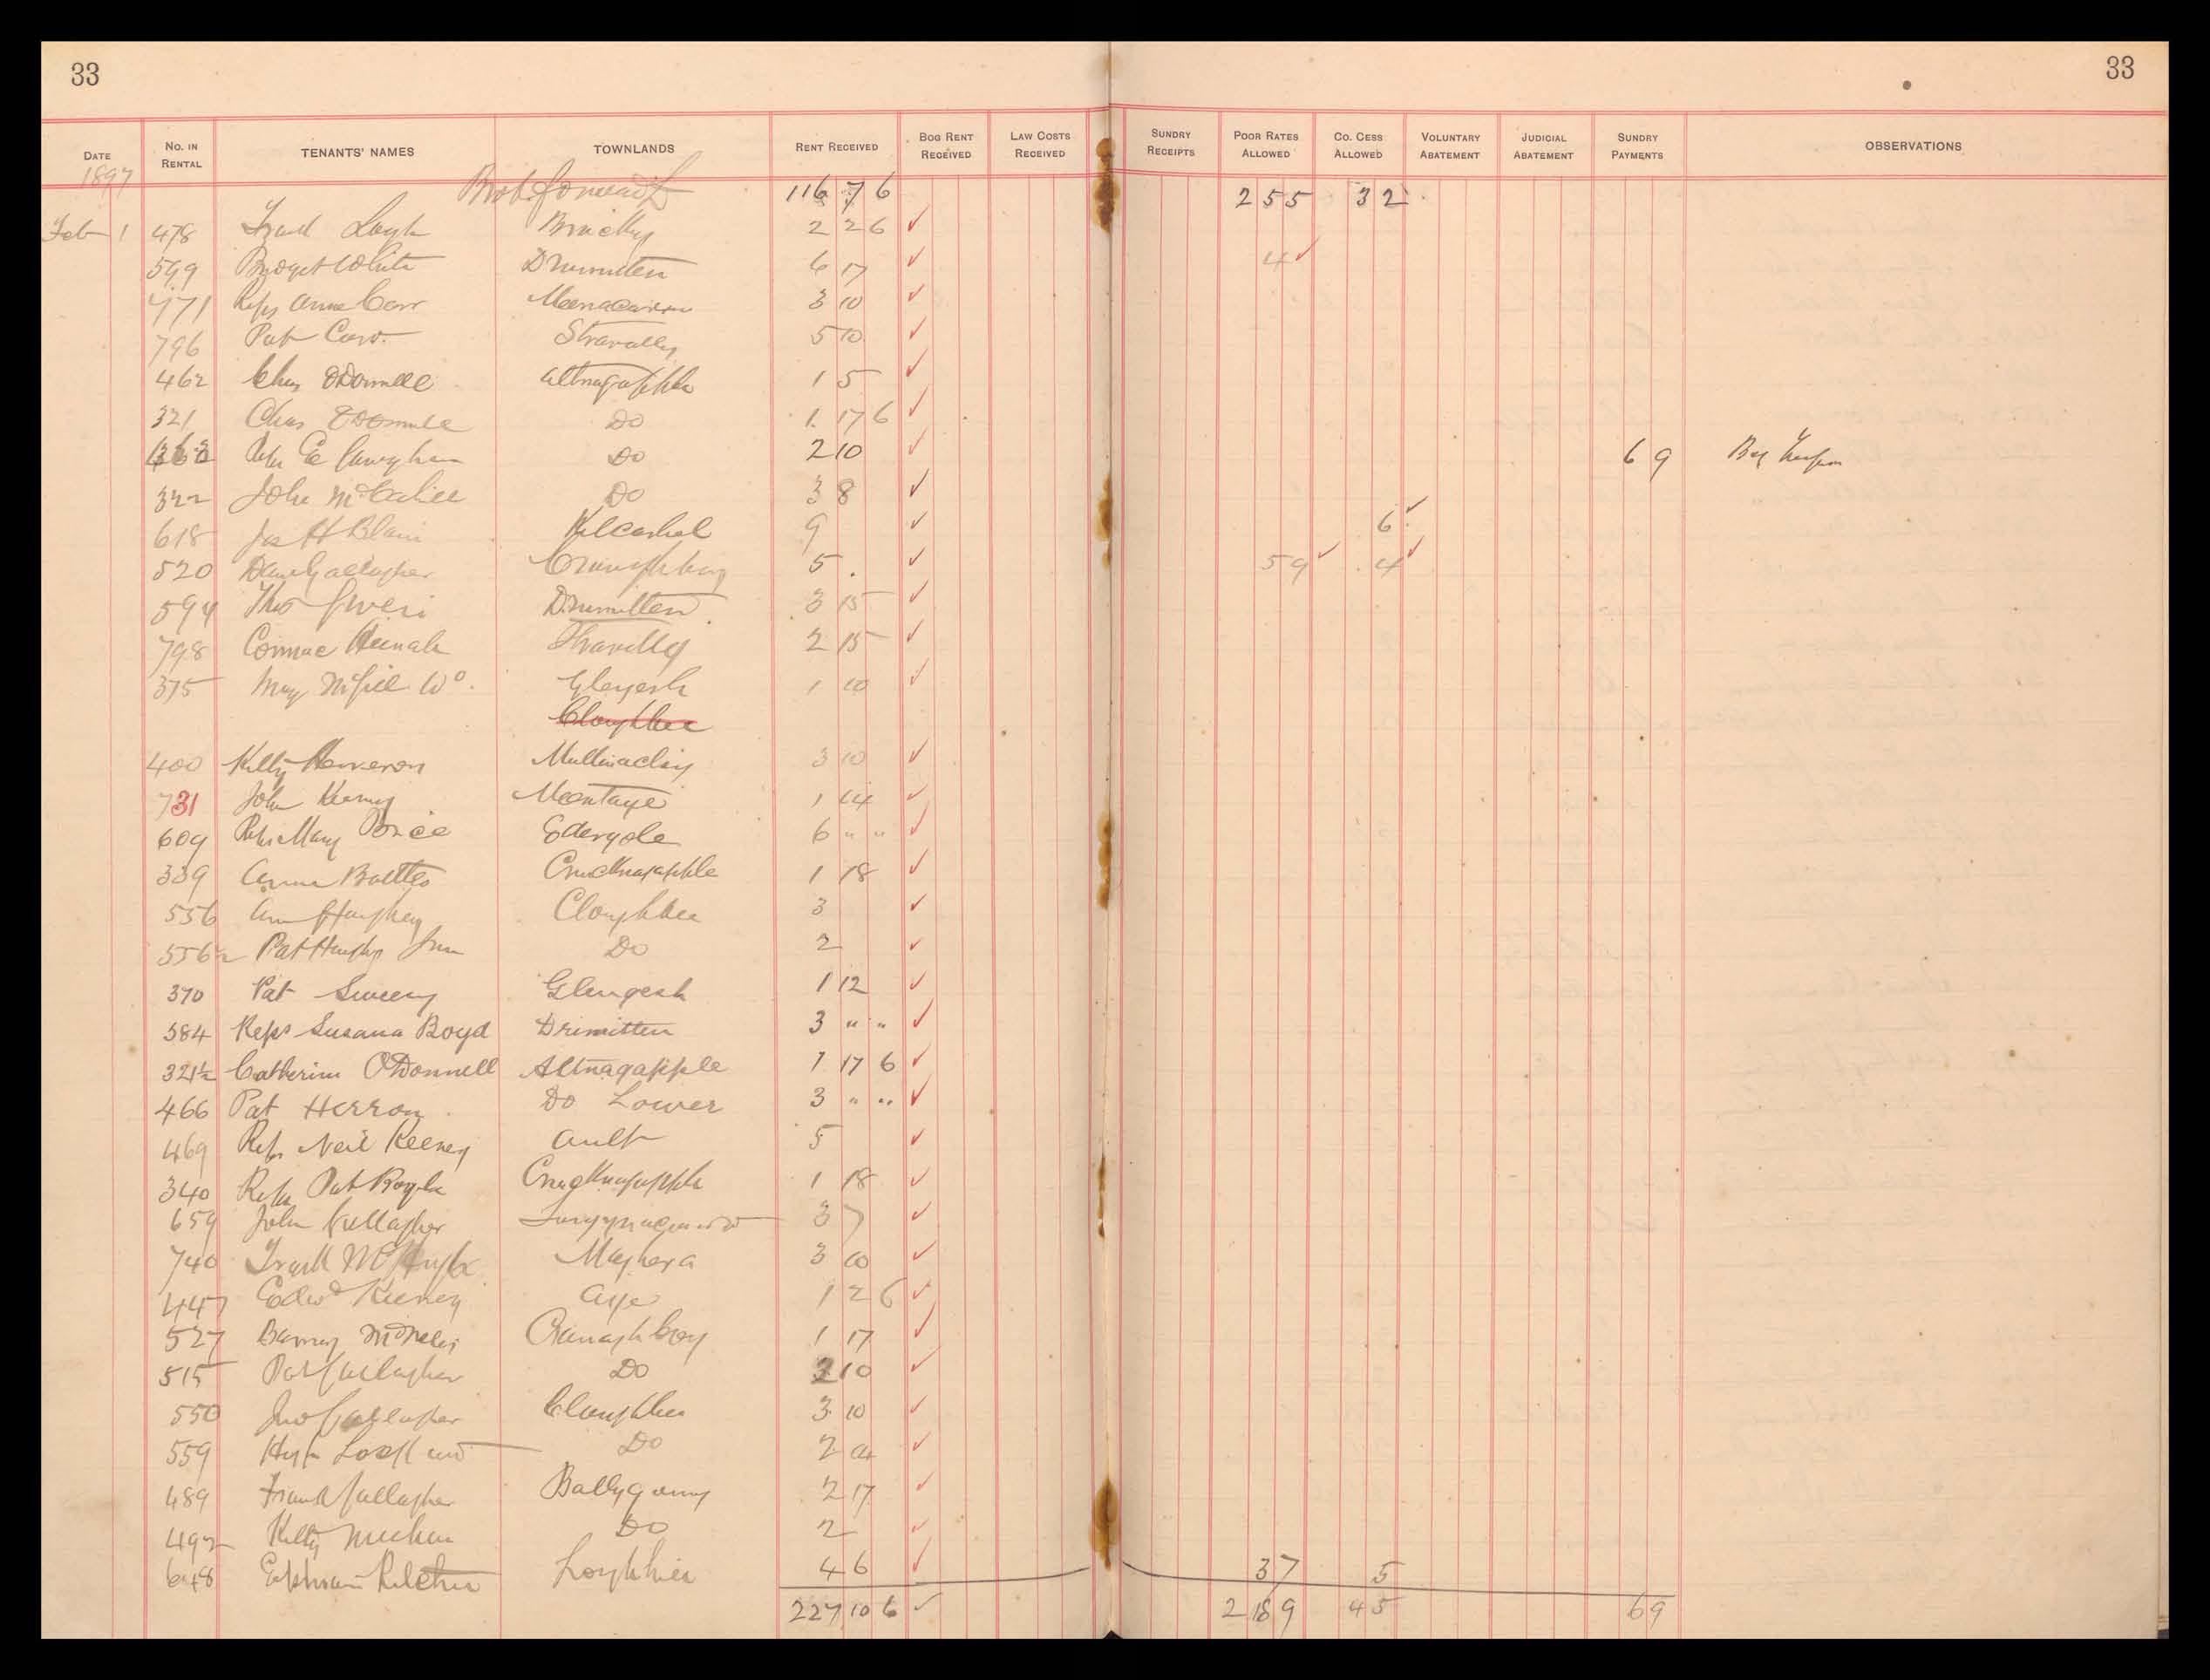 33 33
DATE No. IN RENTAL TENANTS' NAMES TOWNLANDS RENT RECEIVED BOG RENT RECEIVED LAW COSTS RECEIVED SUNDRY RECEIPTS POOR RATES ALLOWED CO. CESS ALLOWED VOLUNTARY ABATEMENT JUDICIAL ABATEMENT SUNDRY PAYMENTS OBSERVATIONS
1897
Brot forward £ 116 7 6 2 5 5 3 2
Feb 1 478 2 2 6 ✓
599 Bridget White Drumitten 6 17 ✓ 4 ✓
771 Reps Anne Carr 3 10 ✓
796 Pat Carr Stravally 5 10 ✓
462 Chas O'Donnell Altnagapple 1 5 ✓
321 Chas O'Donnell Do 1 17 6 ✓
Do 2 10 ✓ 6 9
322 John McCahill Do 3 8 ✓
618 Jas H Blain Kilcashel 9 ✓ 6 ✓
520 Dan Gallagher 5 ✓ 5 9 ✓ 4 ✓
594 Thos Drumitten 3 15 ✓
798 Cormac Stravally 2 15 ✓
375 Mary McGill Wo. Glengesh 1 10 ✓
Cloughbee
400 Kitty Mullinacloy 3 10 ✓
731 John Keeney Meentaye 1 14 ✓
609 Reps Mary Price Edergole 6 " " ✓
339 Crucknagapple 1 18 ✓
556 Ann Haughey Cloughbee 3 ✓
556½ Pat Haughey Junr Do 2 ✓
370 Pat Sweeny Glengesh 1 12 ✓
384 Reps Susana Boyd Drimitten 3 " " ✓
321½ Catherine O'Donnell Altnagapple 1 17 6 ✓
466 Pat Herron Do Lower 3 " " ✓
469 Reps Neil Keeney Ault 5 ✓
340 Reps Pat Boyle Crucknagapple 1 18 ✓
659 John Gallagher 3 7 ✓
740 Frank McHugh Maghera 3 10 ✓
447 Edwd Keeney 1 2 6 ✓
527 Barney McNelis Cranaghboy 1 17 ✓
515 Pat Gallagher Do 3 10 ✓
550 Jno Gallagher Cloughbee 3 10 ✓
559 Do 2 ✓
489 Frank Gallagher 2 17 ✓
492 Kitty Meehan Do 2 ✓
648 Ephraim 4 6 ✓ 3 7 5
227 10 6 ✓ 2 18 9 4 5 6 9